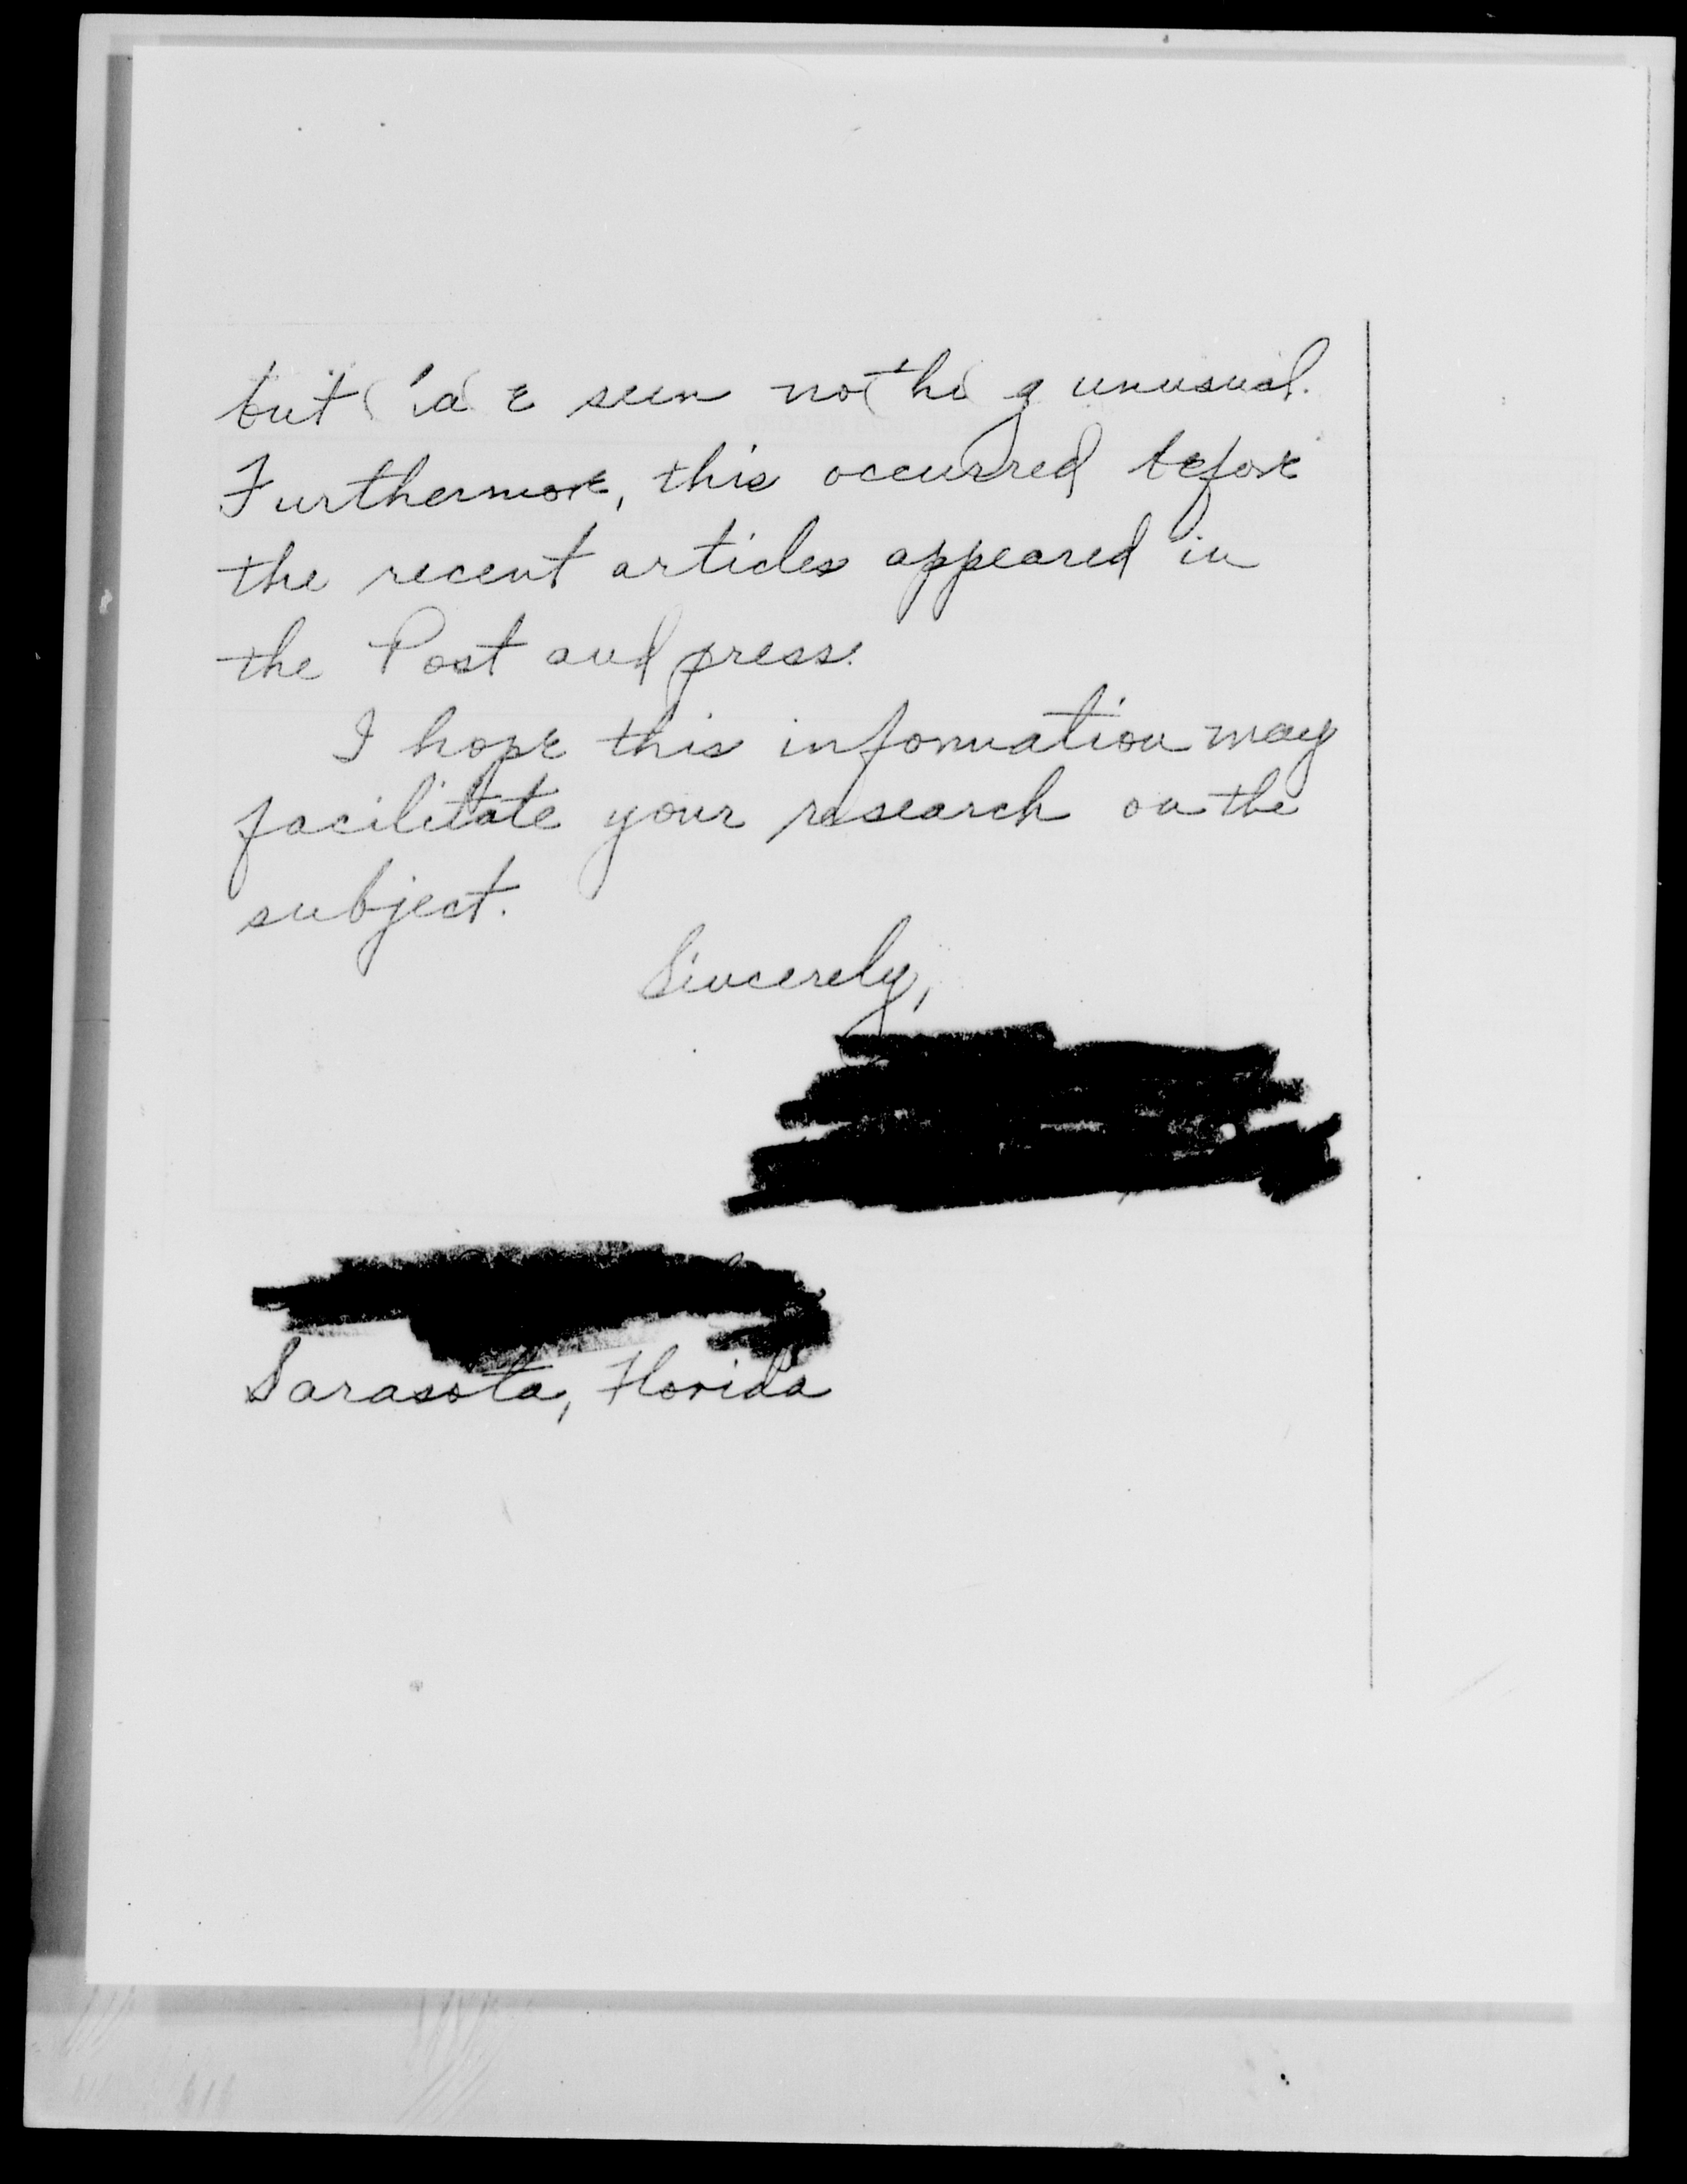 but have seen nothing unusual.
Furthermore, this occurred before
the recent articles appeared in
the Post and press.
I hope this information may
facilitate your research on the
subject.
Sincerely,
Sarasota, Florida